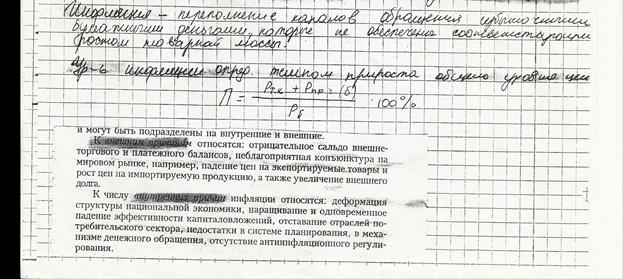 Инфляция – переполнение каналов обращения избыточными
бумажными деньгами, которые не обеспечены соответствующим
ростом товарной массы.
Ур-ь инфляции опред. темпом прироста общего уровня цен
П = Рт.к + Рпр.(б) / Рб · 100%
и могут быть подразделены на внутренние и внешние.
К внешним причинам относятся: отрицательное сальдо внешне-
торгового и платежного балансов, неблагоприятная конъюнктура на
мировом рынке, например, падение цен на экспортируемые товары и
рост цен на импортируемую продукцию, а также увеличение внешнего
долга.
К числу внутренних причин инфляции относятся: деформация
структуры национальной экономики, наращивание и одновременное
падение эффективности капиталовложений, отставание отраслей по-
требительского сектора, недостатки в системе планирования, в меха-
низме денежного обращения, отсутствие антиинфляционного регули-
рования.